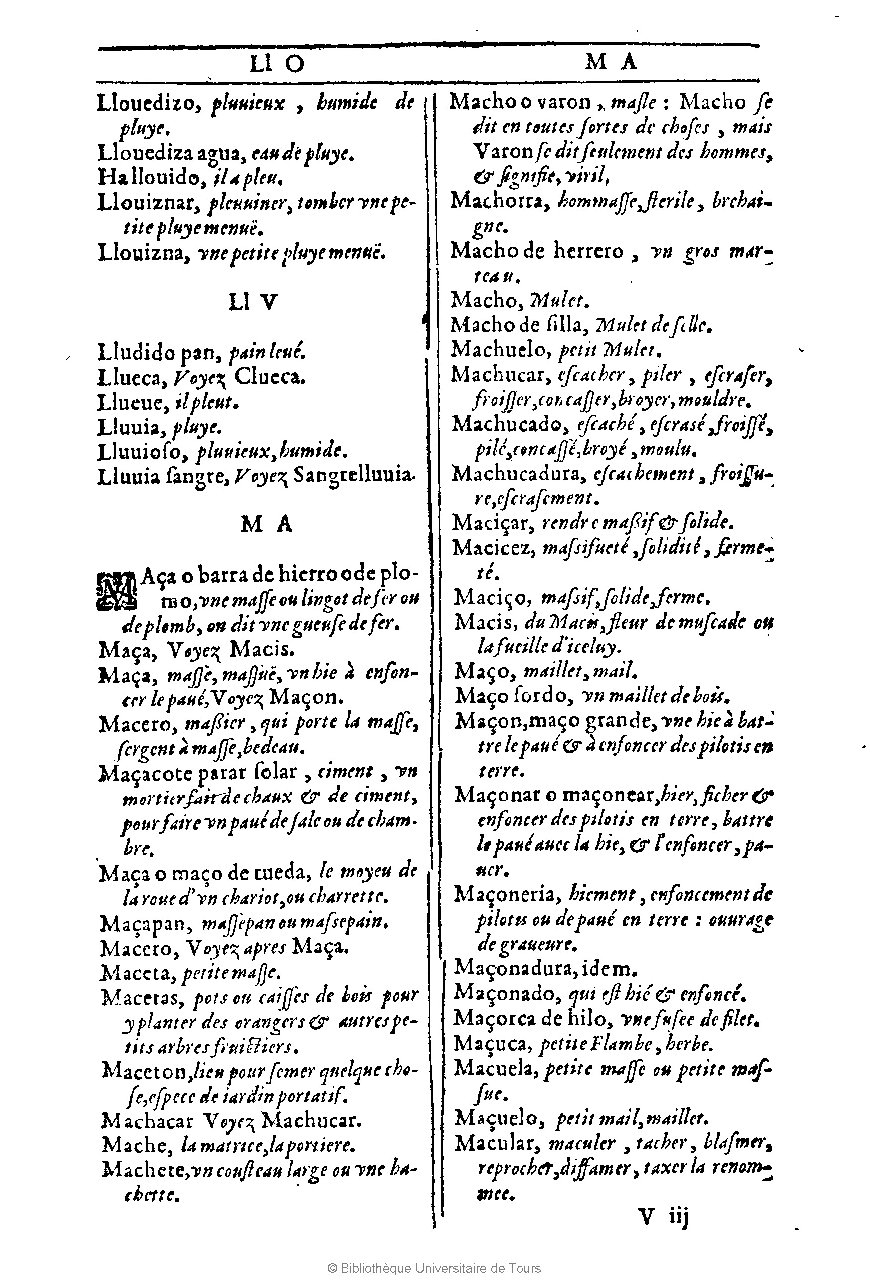 Ll O
Llouedizo, pluuieux , humide de
pluye.
Llouediza agua, eau de pluye.
Hallouido, il a pleu.
Llouiznar, pleuuiner, tomber vne pe-
tite pluye menuë.
Llouizna, vne petite pluye menuë.
Ll V
Lludido pan, pain leué.
Llueca, Voyez Clueca.
Llueue, il pleut.
Lluuia, pluye.
Lluuioſo, pluuieux, humide.
Lluuia ſangre, Voyez Sangrelluuia.
M A
MAça o barra de hierro o de plo-
mo, vne maſſe ou lingot de fer ou
de plomb, on dit vne gueuſe de fer.
Maça, Voyez Macis.
Maça, maſſe, maſſuë, vn hie à enfon-
cer le paué, Voyez Maçon.
Macero, maßier , qui porte la maſſe,
ſergent à maſſe, bedeau.
Maçacote parar ſolar , ciment , vn
mortier fait de chaux & de ciment,
pour faire vn paué de ſale ou de cham-
bre.
Maça o maço de rueda, le moyeu de
la roue d'vn chariot, ou charrette.
Maçapan, maſſepan ou maſsepain.
Macero, Voyez apres Maça.
Maceta, petite maſſe.
Macetas, pots ou caiſſes de bois pour
y planter des orangers & autres pe-
tits arbres fruictiers.
Maceton, lieu pour ſemer quelque cho-
ſe, eſpece de iardin portatif.
Machacar Voyez Machucar.
Mache, la matrice, la portiere.
Machete, vn couſteau large ou vne ha-
chette.
M A
Macho o varon , maſle : Macho ſe
dit en toutes ſortes de choſes , mais
Varon ſe dit ſeulement des hommes,
& ſignifie, viril,
Machorra, hommaſſe, ſterile , brehai-
gne.
Macho de herrero , vn gros mar-
teau.
Macho, Mulet.
Macho de ſilla, Mulet de ſelle.
Machuelo, petit Mulet.
Machucar, eſcacher , piler , eſcraſer,
froiſſer, concaſſer, broyer, mouldre.
Machucado, eſcaché , eſcrasé, froiſſé,
pilé, concaſſé, broyé , moulu.
Machucadura, eſcachement , froiſſu-
re, eſcraſement.
Maciçar, rendre maßif & ſolide.
Macicez, maſsifueté, ſolidité , ferme-
té.
Maciço, maſsif, ſolide, ferme.
Macis, du Macis, fleur de muſcade ou
la fueille d'iceluy.
Maço, maillet, mail.
Maço ſordo, vn maillet de bois.
Maçon, maço grande, vne hie à bat-
tre le paué & à enfoncer des pilotis en
terre.
Maçonar o maçonear, hier, ficher &
enfoncer des pilotis en terre, battre
le paué auec la hie, & l'enfoncer, pa-
uer.
Maçoneria, hiement , enfoncement de
pilotis ou de paué en terre : ouurage
de graueure.
Maçonadura, idem.
Maçonado, qui eſt hié & enfoncé.
Maçorca de hilo, vne fuſee de filet.
Maçuca, petite Flambe, herbe.
Macuela, petite maſſe ou petite maſ-
ſue.
Maçuelo, petit mail, maillet.
Macular, maculer , tacher, blaſmer,
reprocher, diffamer, taxer la renom-
mee.
V iij
© Bibliothèque Universitaire de Tours